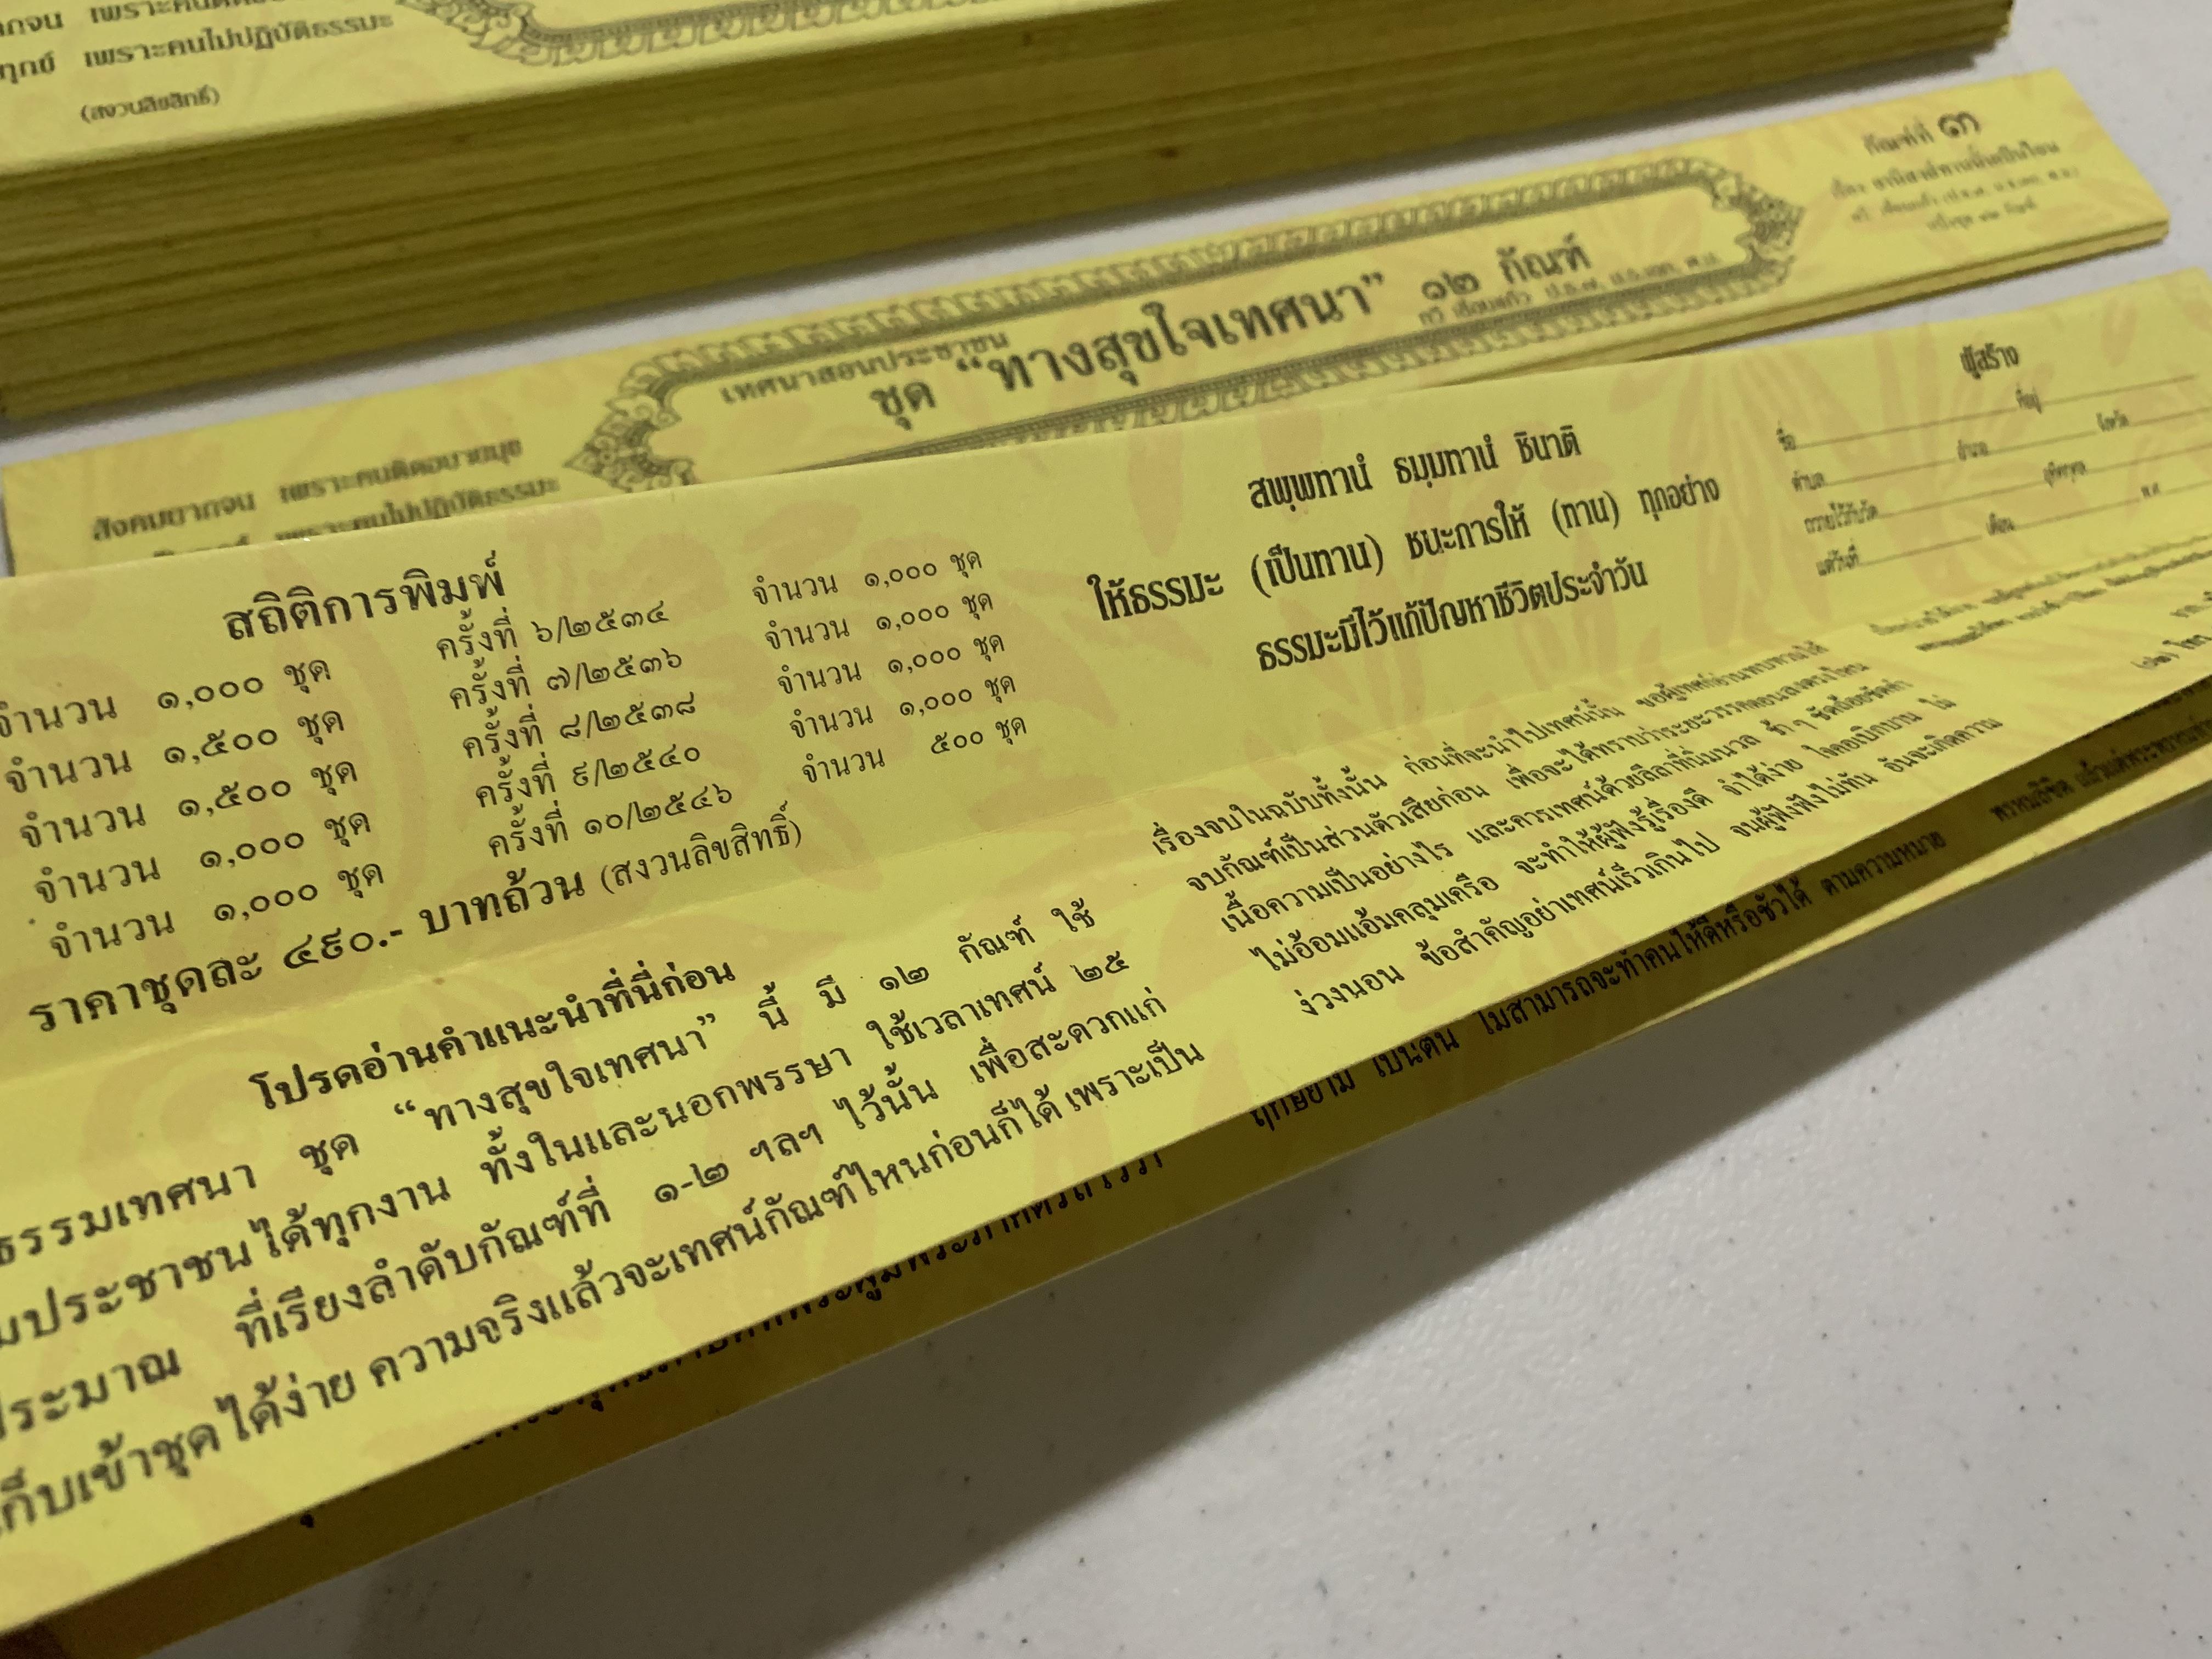 ยากจน เพราะคนติด
ทุกข์ เพราะคนไม่ปฏิบัติธรรมะ
(สงวนลิขสิทธิ์)
กัณฑ์ที่ ๓
เทศนาสอนประชาชน
ชุด “ทางสุขใจเทศนา” ๑๒ กัณฑ์
สังคมยากจน เพราะคนติดอบายมุข
เพราะคนไม่ปฏิบัติธรรมะ
สถิติการพิมพ์
จำนวน ๑,๐๐๐ ชุด ครั้งที่ ๖/๒๕๓๔ จำนวน ๑,๐๐๐ ชุด
จำนวน ๑,๕๐๐ ชุด ครั้งที่ ๗/๒๕๓๖ จำนวน ๑,๐๐๐ ชุด
จำนวน ๑,๕๐๐ ชุด ครั้งที่ ๘/๒๕๓๘ จำนวน ๑,๐๐๐ ชุด
จำนวน ๑,๐๐๐ ชุด ครั้งที่ ๙/๒๕๔๐ จำนวน ๑,๐๐๐ ชุด
จำนวน ๑,๐๐๐ ชุด ครั้งที่ ๑๐/๒๕๔๖ จำนวน ๕๐๐ ชุด
ราคาชุดละ ๔๙๐.- บาทถ้วน (สงวนลิขสิทธิ์)
สพฺพทานํ ธมฺมทานํ ชินาติ
ให้ธรรมะ (เป็นทาน) ชนะการให้ (ทาน) ทุกอย่าง
ธรรมะมีไว้แก้ปัญหาชีวิตประจำวัน
ผู้สร้าง
ชื่อ ที่อยู่
ตำบล อำเภอ จังหวัด
ถวายไว้กับวัด อุทิศกุศล
แต่วันที่ เดือน พ.ศ.
โปรดอ่านคำแนะนำที่นี่ก่อน
ธรรมเทศนา ชุด “ทางสุขใจเทศนา” นี้ มี ๑๒ กัณฑ์ ใช้
ประชาชนได้ทุกงาน ทั้งในและนอกพรรษา ใช้เวลาเทศน์ ๒๕
ประมาณ ที่เรียงลำดับกัณฑ์ที่ ๑-๒ ฯลฯ ไว้นั้น เพื่อสะดวกแก่
เก็บเข้าชุดได้ง่าย ความจริงแล้วจะเทศน์กัณฑ์ไหนก่อนก็ได้ เพราะเป็น
เรื่องจบในฉบับทั้งนั้น ก่อนที่จะนำไปเทศน์นั้น ขอผู้เทศก์อ่านทบทวนให้
จบกัณฑ์เป็นส่วนตัวเสียก่อน เพื่อจะได้ทราบว่าระยะวรรคตอนลงตรงไหน
เนื้อความเป็นอย่างไร และควรเทศน์ด้วยลีลาที่นิ่มนวล ช้า ๆ ชัดถ้อยชัดคำ
ไม่อ้อมแอ้มคลุมเครือ จะทำให้ผู้ฟังรู้เรื่องดี จำได้ง่าย ใจคอเบิกบาน ไม่
ง่วงนอน ข้อสำคัญอย่าเทศน์เร็วเกินไป จนผู้ฟังฟังไม่ทัน อันจะเกิดความ
ฤกษ์ยาม เป็นต้น ไม่สามารถจะทำคนให้ดีหรือชั่วได้ ตามความหมาย